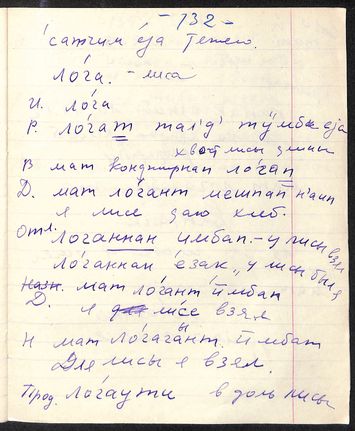 - 132 -
сатчим ёја тетею.
ло́га. - лиса
И. ло́га
Р. ло́гат тал'д' тӱмбы еја
хвост лисы длины
В мат кондџирнап ло́гап
Д. мат ло́гант мешпап н'аип
я лисе даю хлеб.
Отл. логаннан имбап. - у лисы взял
логаннан ёзак „ у лисы был я
Назн. мат ло́гант имбап
Д. я для лисе взял
Н мат ло́гагант имбат
Для лисы я взял.
Прод. ло́гаути в доль лисы